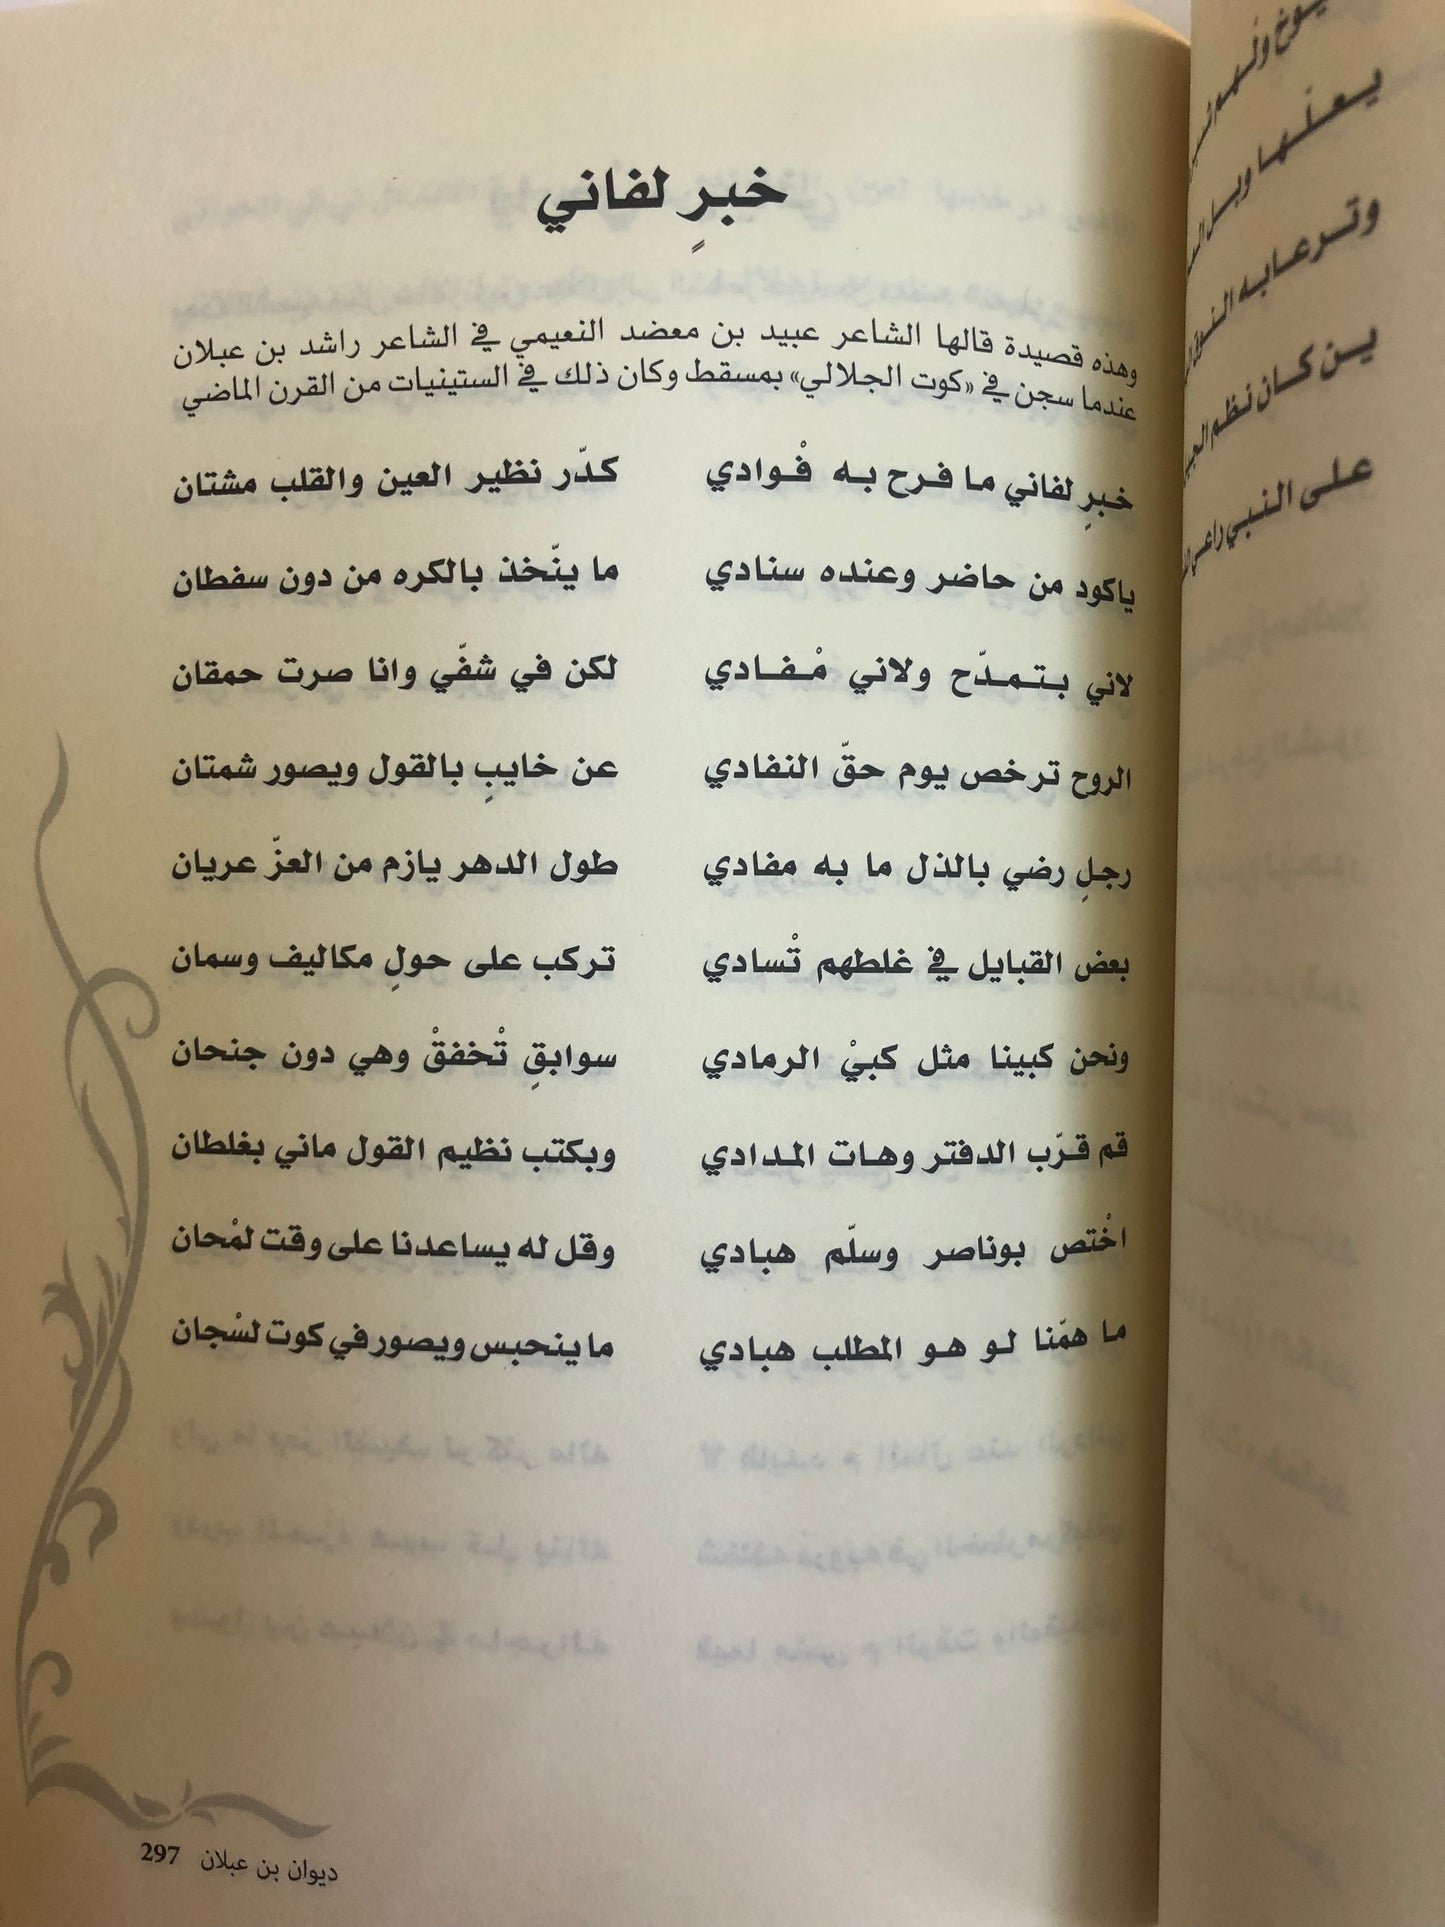 خبرٍ لفاني
وهذه قصيدة قالها الشاعر عبيد بن معضد النعيمي في الشاعر راشد بن عبلان
عندما سجن في «كوت الجلالي» بمسقط وكان ذلك في الستينيات من القرن الماضي
خبرٍ لفاني ما فرح به فْوادي كدّر نظير العين والقلب مشتان
ياكود من حاضر وعنده سنادي ما ينّخذ بالكره من دون سفطان
لاني بتمدّح ولاني مْفادي لكن في شفّي وانا صرت حمقان
الروح ترخص يوم حقّ النفادي عن خايبٍ بالقول ويصور شمتان
رجلٍ رضي بالذل ما به مفادي طول الدهر يازم من العزّ عريان
بعض القبايل في غلطهم تْسادي تركب على حولٍ مكاليف وسمان
ونحن كبينا مثل كبيْ الرمادي سوابقٍ تْخفقْ وهي دون جنحان
قم قرّب الدفتر وهات المدادي وبكتب نظيم القول ماني بغلطان
اخْتص بوناصر وسلّم هبادي وقل له يساعدنا على وقت لمْحان
ما همّنا لو هو المطلب هبادي ما ينحبس ويصور في كوت لسْجان
ديوان بن عبلان 297
يعلّها وبل
وترعا به النوق
ين كان نظم
على النبي راعي